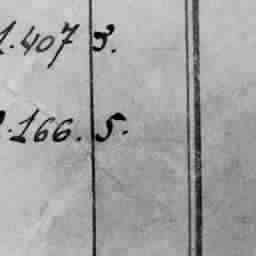 1.407 3.
.166. 5.